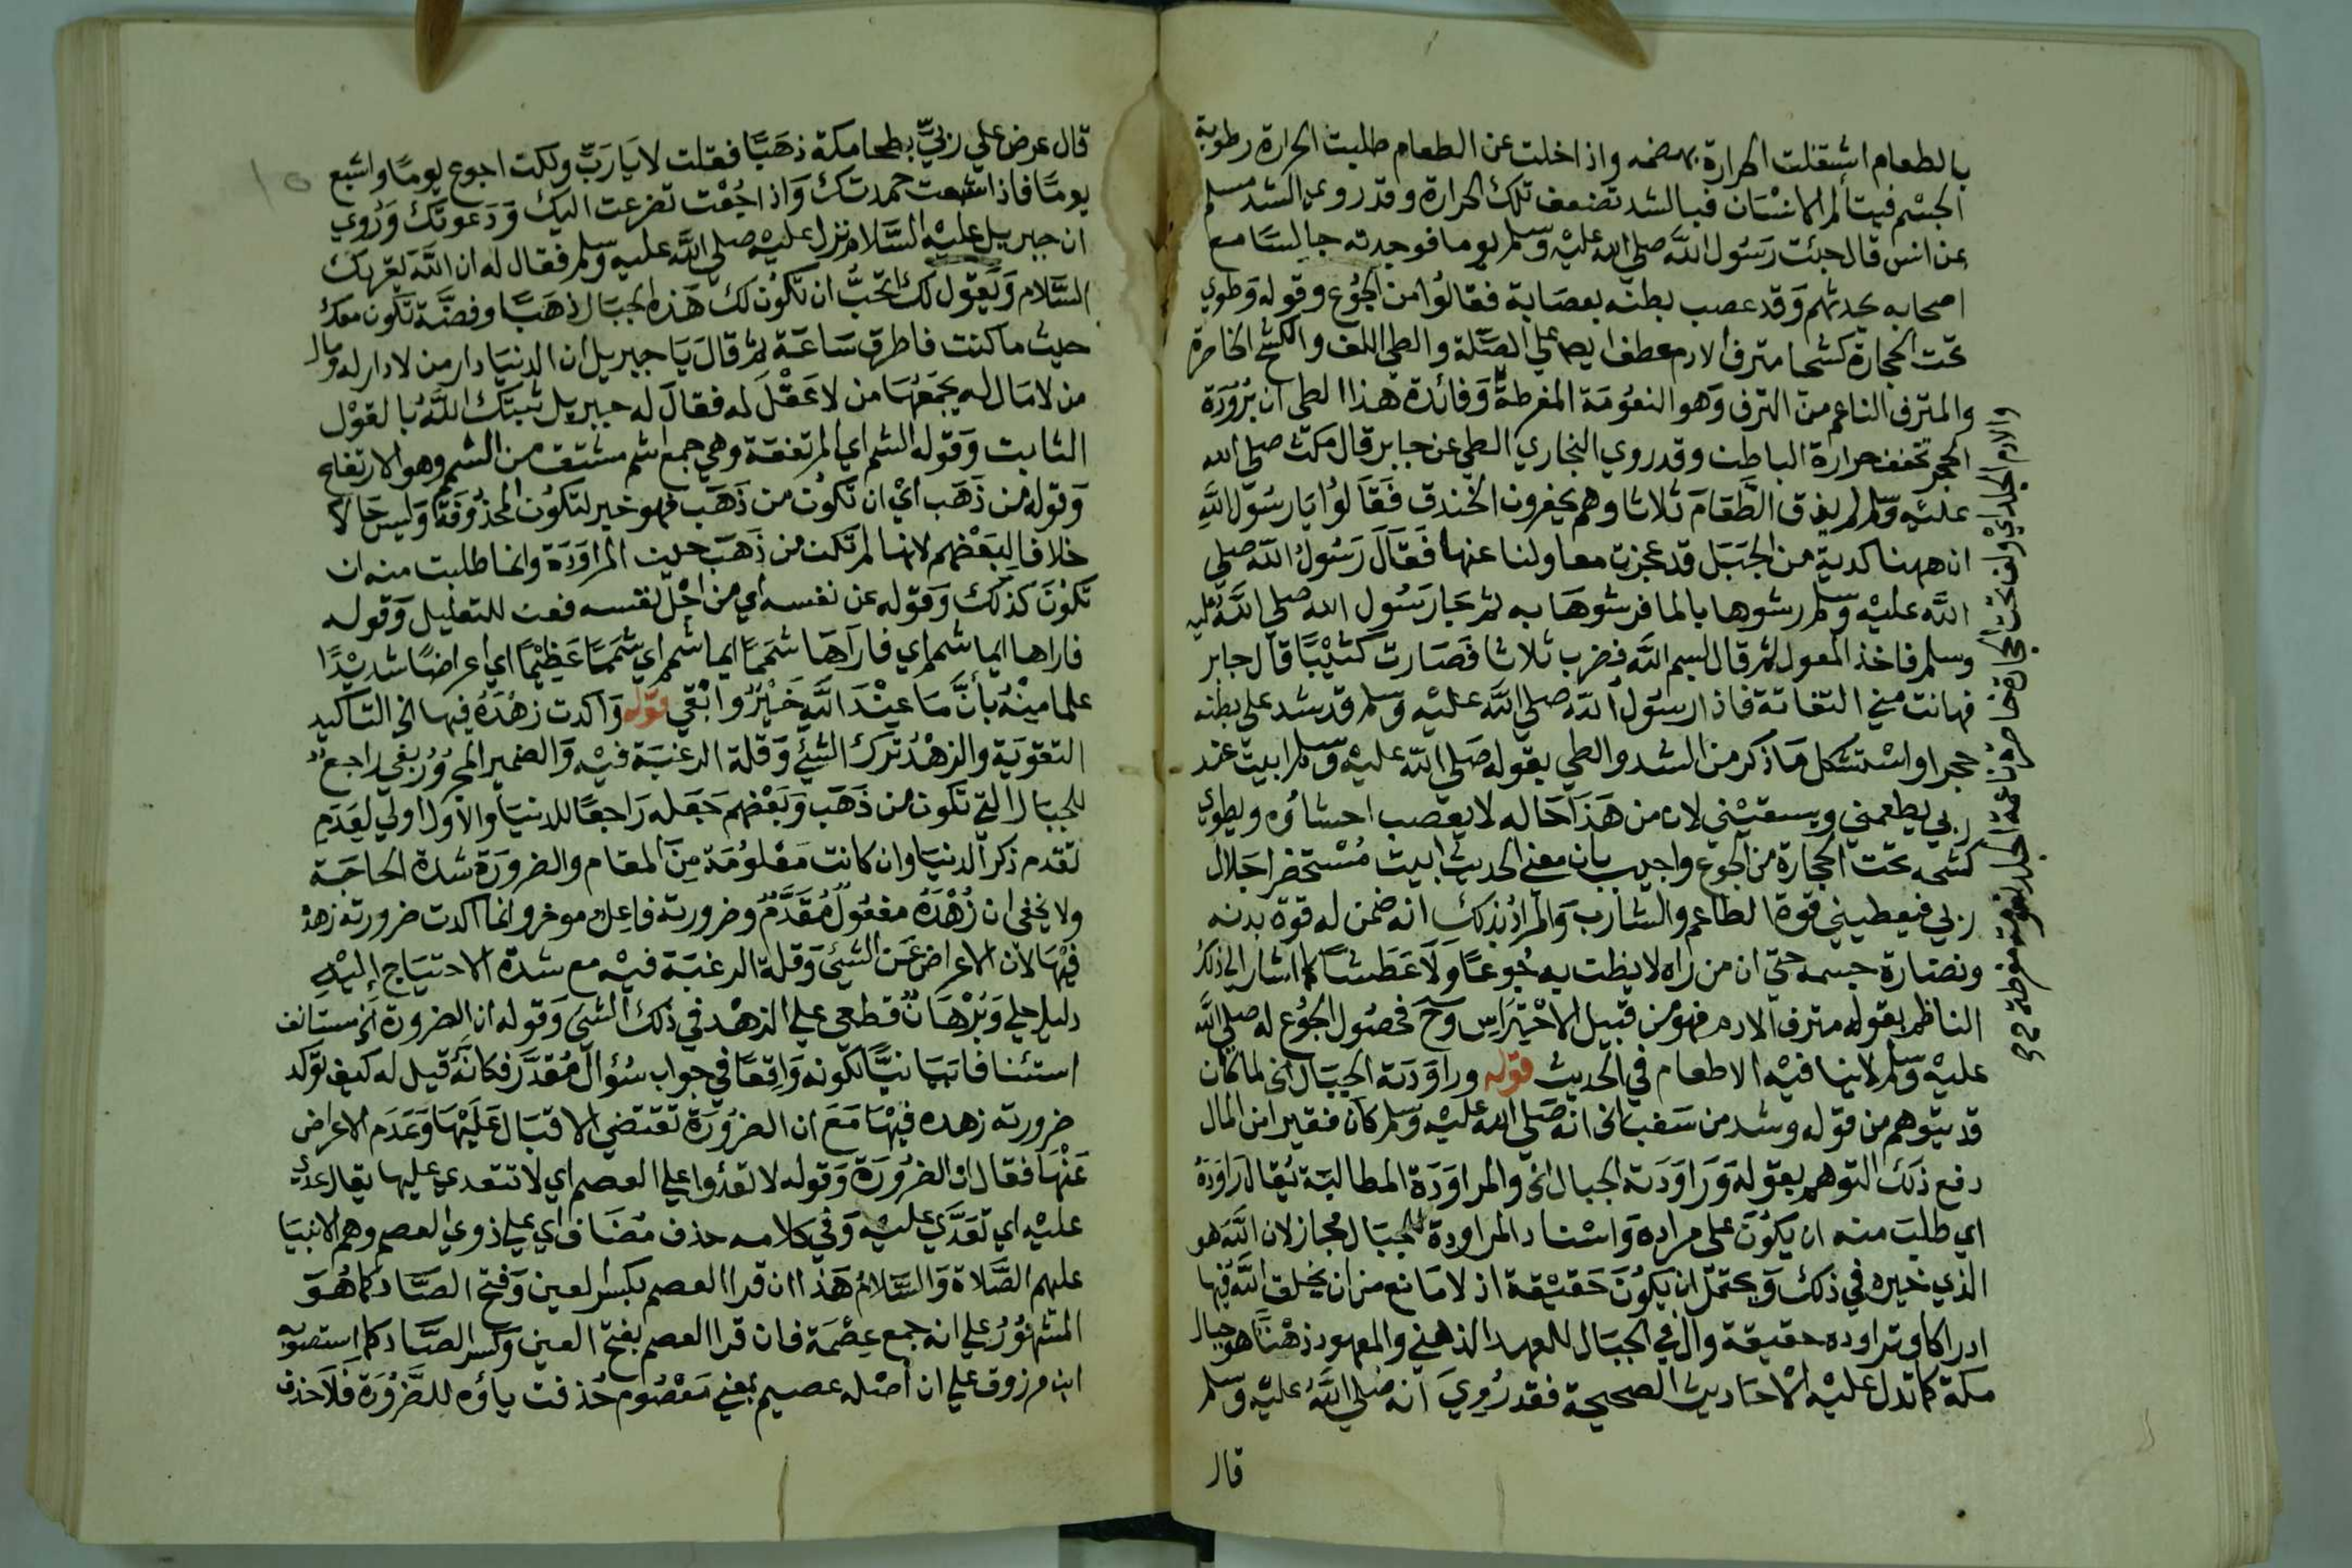 بالطعام اشتغلت الحرارة بهضمه واذا خلت عن الطعام طلبت الحرارة رطوبة
الجسم فيتألم الانسان فبالشد تضعف تلك الحرارة وقد روي الشد مسلم
عن انس قال جئت رسول الله صلي الله عليه وسلم يوما فوجدته جالسا مع
اصحابه يحدثهم وقد عصب بطنه بعصابة فقالوا من الجوع وقوله وطوي
تحت الحجارة كشحا مترف الادم عطف ايضا علي الصلة والطي اللف والكشح الخاصرة
والمترف الناعم من الترف وهو النعومة المفرطة وفائدة هذا الطي ان برودة
الحجر تخفف حرارة الباطن وقد روي البخاري الطي عن جابر قال مكث صلي الله
عليه وسلم لم يذق الطعام ثلاثا وهم يحفرون الخندق فقالوا يا رسول الله
ان ههنا كدية من الجبل قد عجزت معاولنا عنها فقال رسول الله صلي
الله عليه وسلم رشوها بالما فرشوها به ثم جا رسول الله صلي الله عليه
وسلم فاخذ المعول ثم قال بسم الله فضرب ثلاثا فصارت كثيبا قال جابر
فهانت مني التفاتة فاذا رسول الله صلي الله عليه وسلم قد شد علي بطنه
حجرا واستشكل ما ذكر من الشد والطي بقوله صلي الله عليه وسلم ابيت عند
ربي يطعمني ويسقيني لان من هذا حاله لا يعصب احشاؤه ويطوي
كشحه تحت الحجارة من الجوع واجيب بان معني الحديث ابيت مستحضر اجلال
ربي فيعطيني قوة الطاعم والشارب والمراد بذلك انه ضمن له قوة بدنه
ونضارة جسمه حتي ان من راه لا يظن به جوعا ولا عطشا كما اشار الي ذلك
الناظم بقوله مترف الادم فهو من قبيل الاحتراس وح فحصول الجوع له صلي الله
عليه وسلم لا ينافيه الاطعام في الحديث قوله وراودته الجبال الخ لما كان
قد يتوهم من قوله وشد من سغب الخ انه صلي الله عليه وسلم كان فقيرا من المال
دفع ذلك التوهم بقوله وراودته الجبال الخ والمراودة المطالبة يقال راوده
اي طلب منه ان يكون علي مراده واسناد المراودة للجبال مجاز لان الله هو
الذي خيره في ذلك ويحتمل ان يكون حقيقة اذ لا مانع من ان يخلق الله فيها
ادراكا وتراوده حقيقة وال في الجبال للعهد الذهني والمعهود ذهنا هو جبال
مكة كما تدل عليه الاحاديث الصحيحة فقد روي انه صلي الله عليه وسلم
قال
والادم الجلد اي ولف تحت الحجارة خاصرة ناعمة الجلد نعومة مفرطة
قال عرض علي ربي بطحا مكة ذهبا فقلت لا يا رب ولكن اجوع يوما واشبع
يوما فاذا شبعت حمدتك واذا جعت تضرعت اليك ودعوتك وروي
ان جبريل عليه السلام نزل عليه صلي الله عليه وسلم فقال له ان الله يقريك
السلام ويقول لك اتحب ان تكون لك هذه الجبال ذهبا وفضة تكون معك
حيث ما كنت فاطرق ساعة ثم قال يا جبريل ان الدنيا دار من لا دار له ومال
من لا مال له يجمعها من لا عقل له فقال له جبريل ثبتك الله بالقول
الثابت وقوله الشم اي المرتفعة وهي جمع اشم مشتق من الشمم وهو الارتفاع
وقوله من ذهب اي ان تكون من ذهب فهو خبر لتكون المحذوفة وليس حالا
خلافا لبعضهم لانها لم تكن من ذهب حين المراودة وانما طلبت منه ان
تكون كذلك وقوله عن نفسه اي من اجل نفسه فعن للتعليل وقوله
فاراها ايما شمم اي فاراها شمما ايما شمم اي شمما عظيما اي اعراضا شديدا
علما منه بأن ما عند الله خير وابقي قوله واكدت زهده فيها الخ التاكيد
التقوية والزهد ترك الشئ وقلة الرغبة فيه والضمير المجرور بفي راجع
للجبال التي تكون من ذهب وبعضهم جعله راجعا للدنيا والاول اولي لعدم
تقدم ذكر الدنيا وان كانت معلومة من المقام والضرورة شدة الحاجة
ولا يخفي ان زهده مفعول مقدم وضرورته فاعل موخر وانما اكدت ضرورته زهده
فيها لان الاعراض عن الشئ وقلة الرغبة فيه مع شدة الاحتياج اليه
دليل جلي وبرهان قطعي علي الزهد في ذلك الشئ وقوله ان الضرورة الخ مستانف
استئنافا بيانيا لكونه واقعا في جواب سؤال مقدر فكانه قيل له كيف توكد
ضرورته زهده فيها مع ان الضرورة تقتضي الاقبال عليها وعدم الاعراض
عنها فقال ان الضرورة وقوله لا تعدوا علي العصم اي لا تتعدي عليها يقال عدي
عليه اي تعدي عليه وفي كلامه حذف مضاف اي علي ذوي العصم وهم الانبيا
عليهم الصلاة والسلام هذا ان قرا العصم بكسر العين وفتح الصاد كما هو
المشهور علي انه جمع عصمة فان قرا العصم بفتح العين وكسر الصاد كما استصوبه
ابن مرزوق علي ان أصله عصيم بمعني معصوم حذفت ياؤه للضرورة فلا حذف